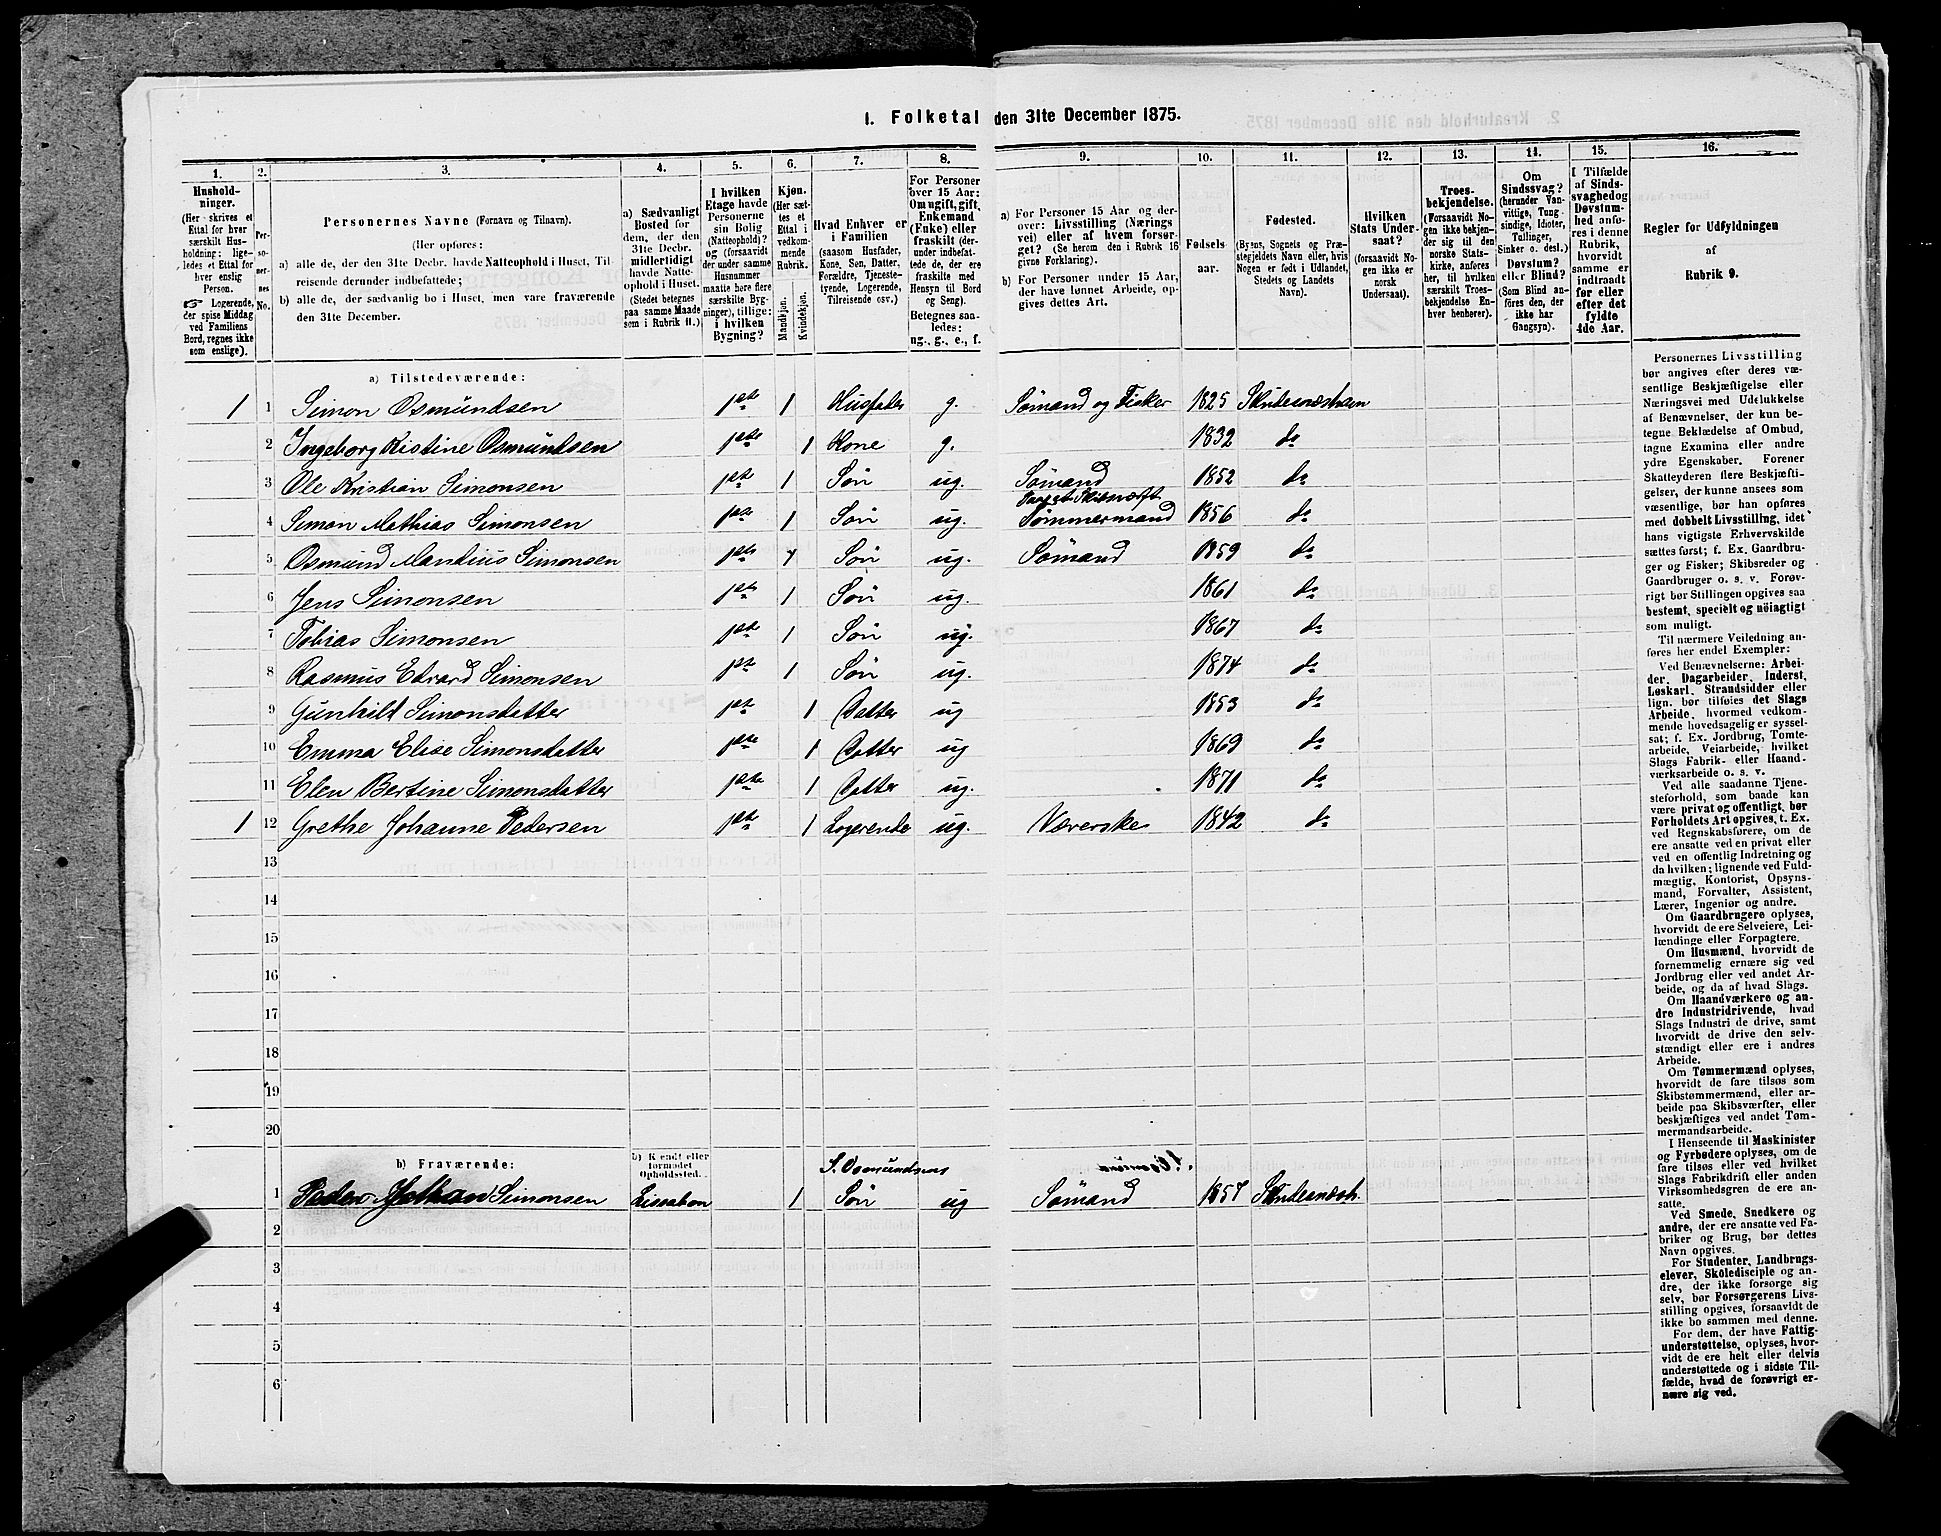 1. Folketal den 31te December 1875.
1. 2. 3. 4. 5. 6. 7. 8. 9. 10. 11. 12. 13. 14. 15. 16.
Hushold-
ninger.
(Her skrives et
Ettal for hver
særskilt Hus-
holdning; lige-
ledes et Ettal for
hver enslig
Person.
☞ Logerende,
der spise Middag
ved Familiens
Bord, regnes ikke
som enslige).
Per-
so-
ner-
nes
No.
Personernes Navne (Fornavn og Tilnavn).
(Her opføres:
a) alle de, der den 31te Decbr. havde Natteophold i Huset, Til-
reisende derunder indbefattede;
b) alle de, der sædvanlig bo i Huset, men vare fraværende
den 31te December.
a) Sædvanligt
Bosted for
dem, der den
31te Decbr.
midlertidigt
havde Natte-
ophold i Huset.
(Stedet betegnes
paa samme Maade
som i Rubrik 11.)
I hvilken
Etage havde
Personerne
sin Bolig
(Natteophold)?
og (forsaavidt
der under samme
Husnummer
maatte høre flere
særskilte Byg-
ninger), tillige:
i hvilken
Bygning?
Kjøn.
(Her sæt-
tes et
Ettal i
vedkom-
mende
Rubrik.
Mandkjøn.
Kvindekjøn.
Hvad Enhver er
i Familien
(saasom Husfader,
Kone, Søn, Datter,
Forældre, Tjeneste-
tyende, Logerende,
Tilreisende osv.)
For Personer
over 15 Aar:
Om ugift, gift,
Enkemand
(Enke) eller
fraskilt (der-
under indbefat-
tede de, der ere
fraskilte med
Hensyn til Bord
og Seng).
Betegnes saa-
ledes:
ng., g., e., f.
a) For Personer 15 Aar og der-
over: Livsstilling (Nærings
vei) eller af hvem forsør-
get? (Se herom den i Rubrik 16
givne Forklaring).
b) For Personer under 15 Aar,
der have lønnet Arbeide, op-
gives dettes Art.
Fødsels
aar.
Fødested.
(Byens, Sognets og Præ-
stegjeldets Navn eller, hvis
Nogen er født i Udlandet,
Stedets og Landets
Navn).
Hvilken
Stats Under-
saat?
(forsaavidt No-
gen ikke er
norsk
Undersaat).
Troes-
bekjendelse.
(Forsaavidt No-
gen ikke bekjen-
der sig til den
norske Stats-
kirke, anføres
her, til hvilken
særskilt Troes-
bekjendelse En-
hver henhører).
Om
Sindssvag?
(herunder Van-
vittige, Tung-
sindige, Idioter,
Tullinger,
Sinker o. desl.).
Døvstum?
eller Blind?
(Som Blind an-
føres den, der
ikke har
Gangsyn).
I Tilfælde
af Sinds-
svaghedog
Døvstum-
hed anfø-
res i denne
Rubrik,
hvorvidt
samme er
indtraadt
før eller
efter det
fyldte
4de Aar.
Regler for Udfyldningen
af
Rubrik 9.
a) Tilstedeværende:
1 1 Simon Osmundsen 1ste 1 Husfader g. Sømand og Fisker 1825 Skudesneshavn
2 Ingeborg Kristine Osmundsen 1ste 1 Kone g. 1832 do
3 Ole Kristian Simonsen 1ste 1 Søn ug. Sømand 1852 do
4 Simon Mathias Simonsen 1ste 1 Søn ug. Tømmermand 1856 do
5 Osmund Mandius Simonsen 1ste 1 Søn ug. Sømand 1859 do
6 Jens Simonsen 1ste 1 Søn ug. 1861 do
7 Tobias Simonsen 1ste 1 Søn ug. 1867 do
8 Rasmus Edvard Simonsen 1ste 1 Søn ug. 1874 do
9 Gunhild Simonsdatter 1ste 1 Datter ug 1853 do
10 Emma Elise Simonsdatter 1ste 1 Datter ug 1869 do
11 Elen Bertine Simonsdatter 1ste 1 Datter ug. 1871 do
1 12 Grethe Johanne Pedersen 1ste 1 Logerende ug. Væverske 1842 do
13
14
15
16
17
18
19
20
b) Fraværende:
b) Kjendt eller
formodet
Opholdssted.
S. Osmundsens
1 Peder Johan Simonsen Lissabon 1 Søn ug Sømand 1857 Skudesnæsh.
2
3
4
5
6
Personernes Livsstilling
bør angives efter deres væ-
sentlige Beskjæftigelse eller
Næringsvei med Udelukkelse
af Benævnelser, der kun be-
tegne Beklædelse af Ombud,
tagne Examina eller andre
ydre Egenskaber. Forener
Skatteyderen flere Beskjæfti-
gelser, der kunne ansees som
væsentlige, bør han opføres
med dobbelt Livsstilling, idet
hans vigtigste Erhvervskilde
sættes først; f. Ex. Gaardbru-
ger og Fisker; Skibsreder og
Gaardbruger o. s. v. Forøv-
rigt bør Stillingen opgives saa
bestemt, specielt og nøiagtigt
som muligt.
Til nærmere Veiledning an-
føres her endel Exempler:
Ved Benævnelserne: Arbei-
der, Dagarbeider, Inderst,
Løskarl, Strandsidder eller
lign. bør tilføies det Slags
Arbeide, hvormed vedkom-
mende hovedsagelig er syssel-
sat; f. Ex. Jordbrug, Tomte-
arbeide, Veiarbeide, hvilket
Slags Fabrik- eller Haand-
værksarbeide o. s. v.
Ved alle saadanne Tjene-
steforhold, som baade kan
være privat og offentligt, bør
Forholdets Art opgives, t. Ex.
ved Regnskabsførere, om de
ere ansatte ved en privat eller
ved en offentlig Indretning og
da hvilken; lignende ved Fuld-
mægtig, Kontorist, Opsyns-
mand, Forvalter, Assistent,
Lærer, Ingeniør og andre.
Om Gaardbrugere oplyses,
hvorvidt de ere Selveiere, Lei-
lændinge eller Forpagtere.
Om Husmænd, hvorvidt de
fornemmelig ernære sig ved
Jordbrug eller ved andet Ar-
beide, og da af hvad Slags.
Om Haandværkere og an-
dre Industridrivende, hvad
Slags Industri de drive, samt
hvorvidt de drive den selv-
stændigt eller ere i andres
Arbeide.
Om Tømmermænd oplyses,
hvorvidt de fare tilsøs som
Skibstømmermænd, eller ar-
beide paa Skibsværfter, eller
beskjæftiges ved andet Tøm-
mermandsarbeide.
I Henseende til Maskinister
og Fyrbødere oplyses, om de
fare tilsøs eller ved hvilket
Slags Fabrikdrift eller anden
Virksomhedsgren de ere an-
satte.
Ved Smede, Snedkere og
andre, der ere ansatte ved Fa-
briker og Brug, bør dettes
Navn opgives.
For Studenter, Landbrugs-
elever, Skoledisciple og an-
dre, der ikke forsørge sig
selv, bør Forsørgerens Livs-
stilling opgives, forsaavidt de
ikke bo sammen med denne.
For dem, der have Fattig-
understøttelse, oplyses, hvor-
vidt de ere helt eller delvis
understøttede og i sidste Til-
fælde, hvad de forøvrigt er-
nære sig ved.